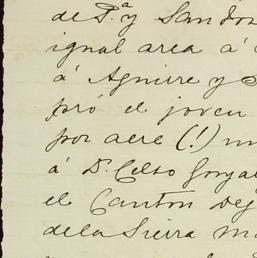 de P.ª y Sandov
igual area á
á Aguirre y
pró el joven
por aere (!) un
á D. Celso Gonzal
el Canton Deg
de la Sierra Ma